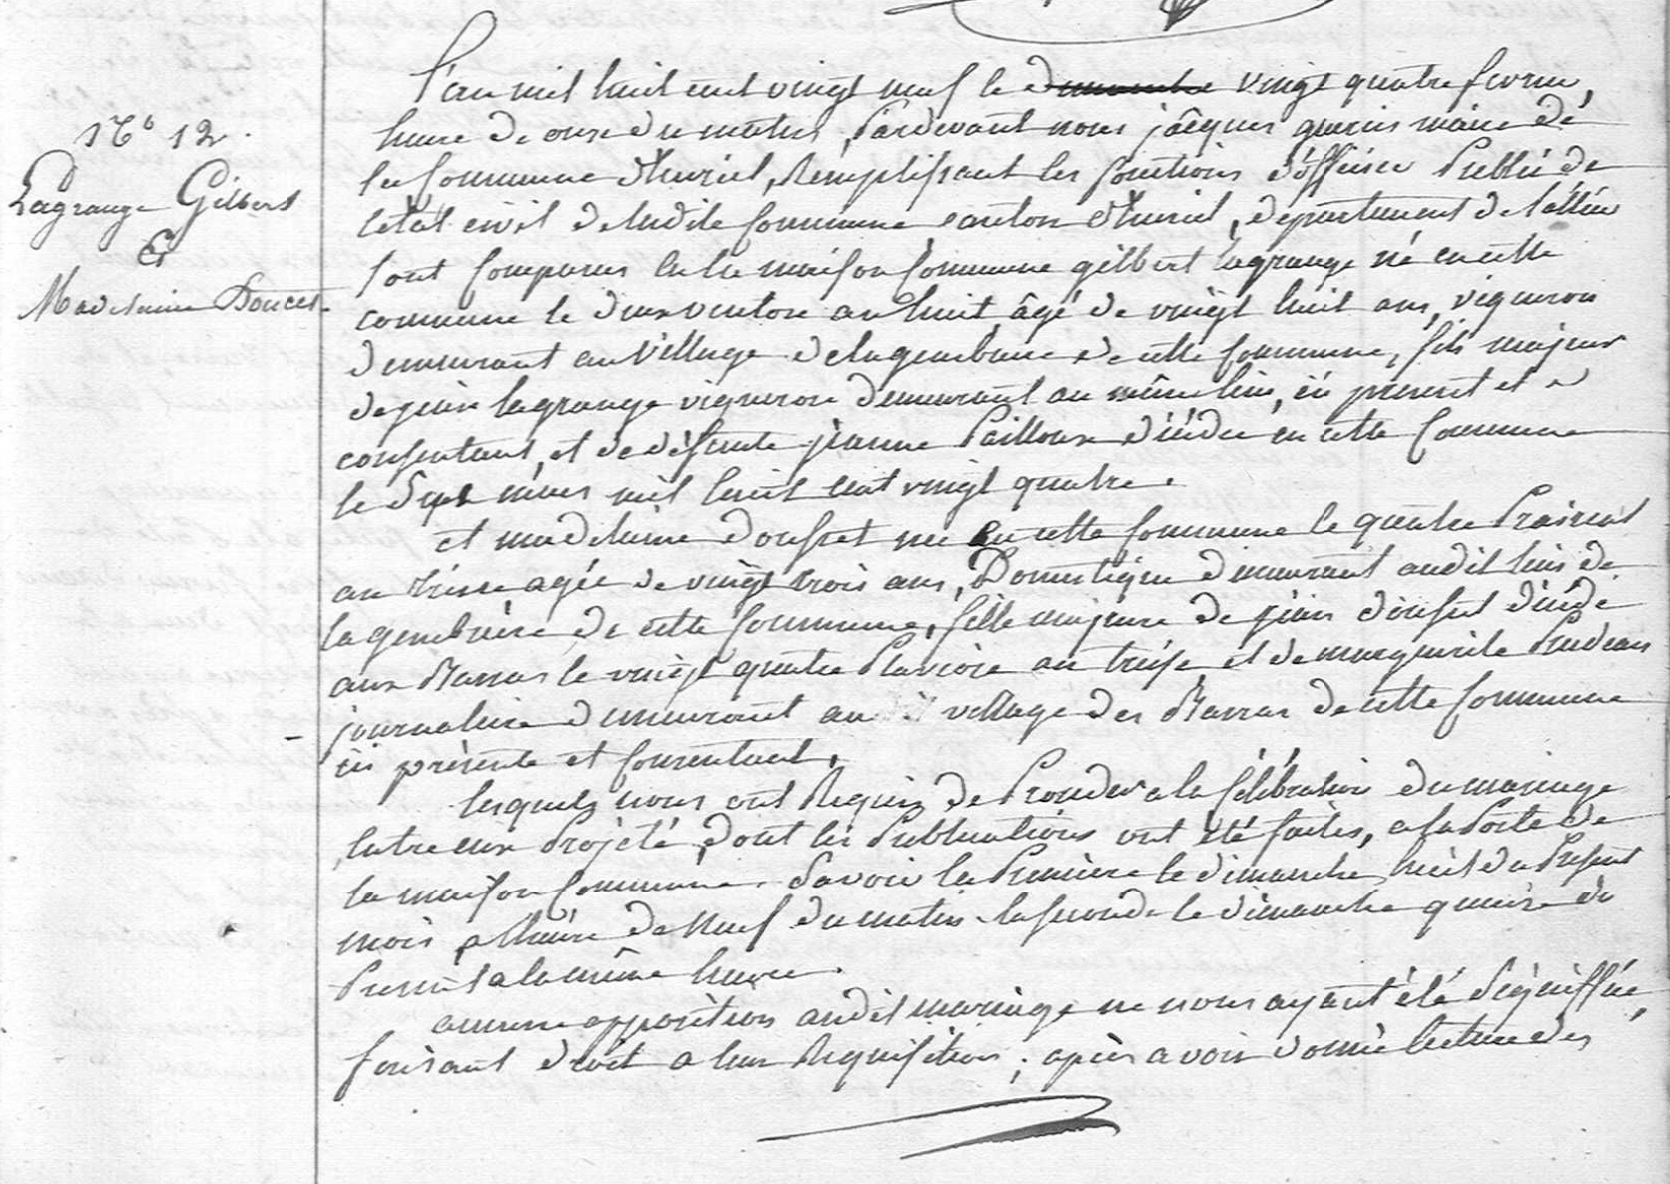 N° 12.
Lagrange Gilbert
Et
Madelaine Doucet
L'an mil huit cent vingt neuf le vingt quatre fevrier,
heure de onze du matin, Pardevant nous jâcques maire de
la Commune d'huriel, Remplissant les fonctions d'officier Public de
létat civil de ladite Commune canton d'huriel, departement de l'allier
sont Comparus en la maison Commune gilbert lagrange né en cette
commune le deux ventose an huit, âgé de vingt huit ans, vigneron
demeurant au village de la genebriere de cette Commune, fils majeur
de jean lagrange vigneron demeurant au même lieu, ici present et
consentant, et de défunte jeanne Pailloux décédée en cette Commune
le Sept mars mil huit cent vingt quatre.
et madelaine dousset née En cette Commune le quatre Prairial
an treize agée de vingt trois ans, Domestique demeurant audit lieu de
la genebriere de cette Commune, fille majeure de jean dousset décédé
aux Barras le vingt quatre Pluviose an treize et de marguerite
journaliere demeurant au village des Barras de cette Commune
ici présente et Consentant,
lesquels nous ont Requis de Proceder a la Célébration du mariage
Entre eux Projeté, dont les Publications ont été faites, a la Porte de
la maison Commune. Savoir la Premiere le dimanche huit du Present
mois a l'heure de Neuf du matin la seconde le dimanche quinze du
Present a la même heure.
aucune opposition audit mariage ne nous ayant été Signiffiée,
faisant droit a leur Requisition ; après avoir donné lecture des